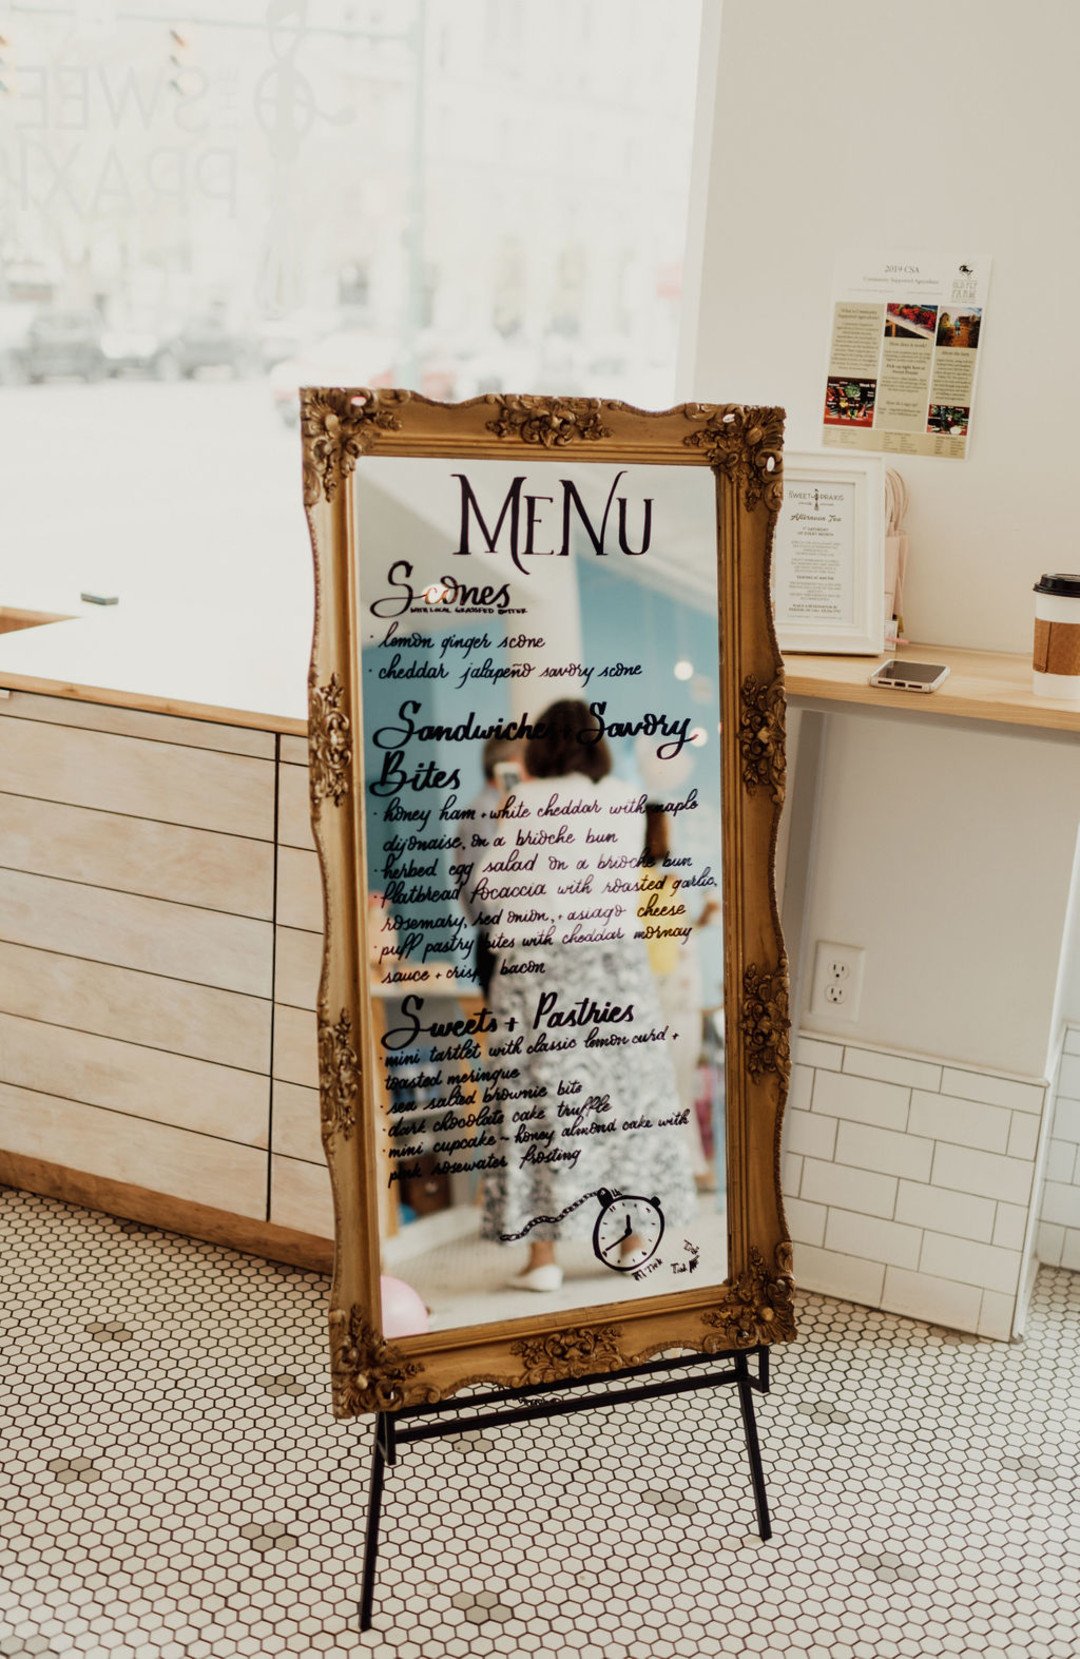 THE SWEE
PRAXI
2019 CSA
Community Supported Agriculture
What is Community
Supported Agriculture?
How does it work?
About the farm
SWEET PRAXIS
Afternoon Tea
1st SATURDAY
OF EVERY MONTH
MENU
Scones
WITH LOCAL GRASSFED BUTTER
· lemon ginger scone
· cheddar jalapeño savory scone
Sandwiches + Savory
Bites
· honey ham + white cheddar with maple
dijonaise, on a brioche bun
· herbed egg salad on a brioche bun
· flatbread focaccia with roasted garlic,
rosemary, red onion, + asiago cheese
· puff pastry bites with cheddar mornay
sauce + crisp bacon
Sweets + Pastries
· mini tartlet with classic lemon curd +
toasted meringue
· sea salted brownie bite
· dark chocolate cake truffle
· mini cupcake ~ honey almond cake with
pink rosewater frosting